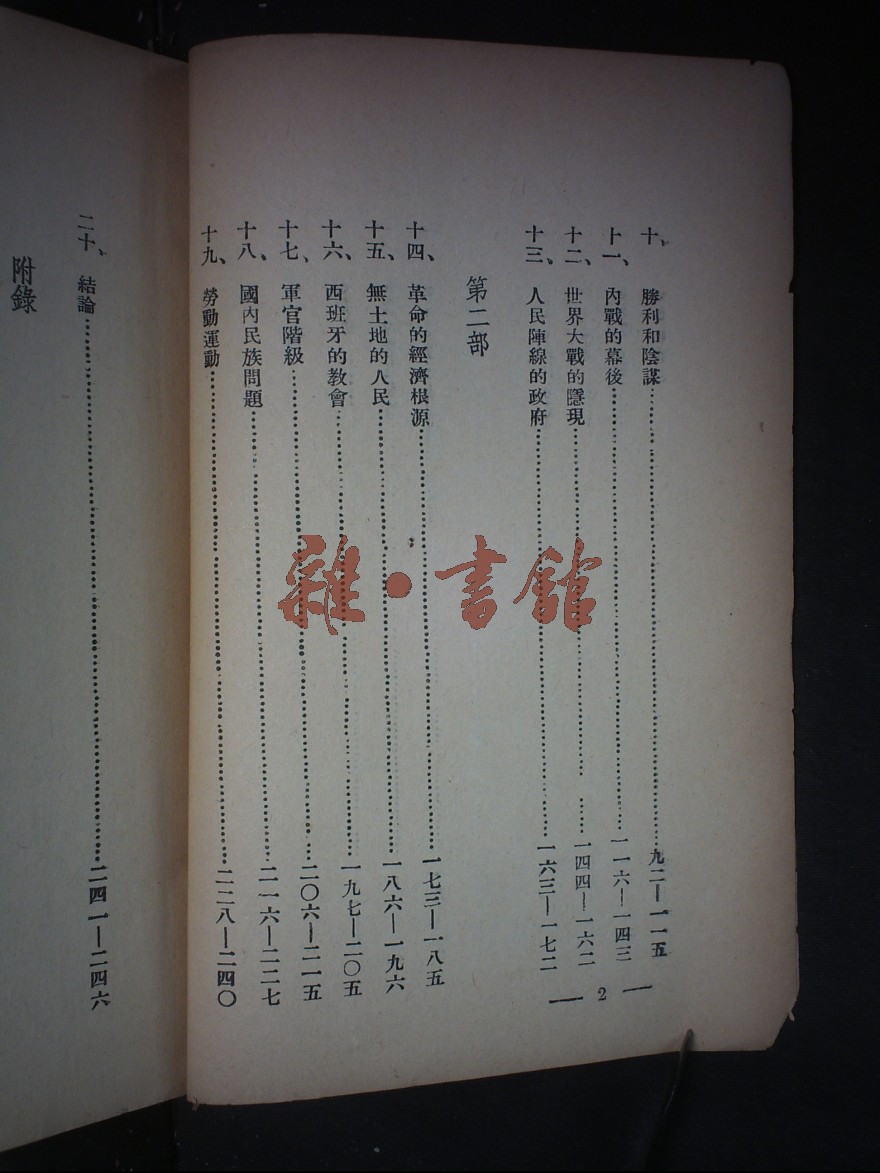 十、勝利和陰謀……九二—一一五
十一、內戰的幕後……一一六—一四三
十二、世界大戰的隱現……一四四—一六二
十三、人民陣線的政府……一六三—一七二
第二部
十四、革命的經濟根源……一七三—一八五
十五、無土地的人民……一八六—一九六
十六、西班牙的教會……一九七—二〇五
十七、軍官階級……二〇六—二一五
十八、國內民族問題……二一六—二二七
十九、勞動運動……二二八—二四〇
— 2 —
二十、結論……二四一—二四六
附錄
雜·書館